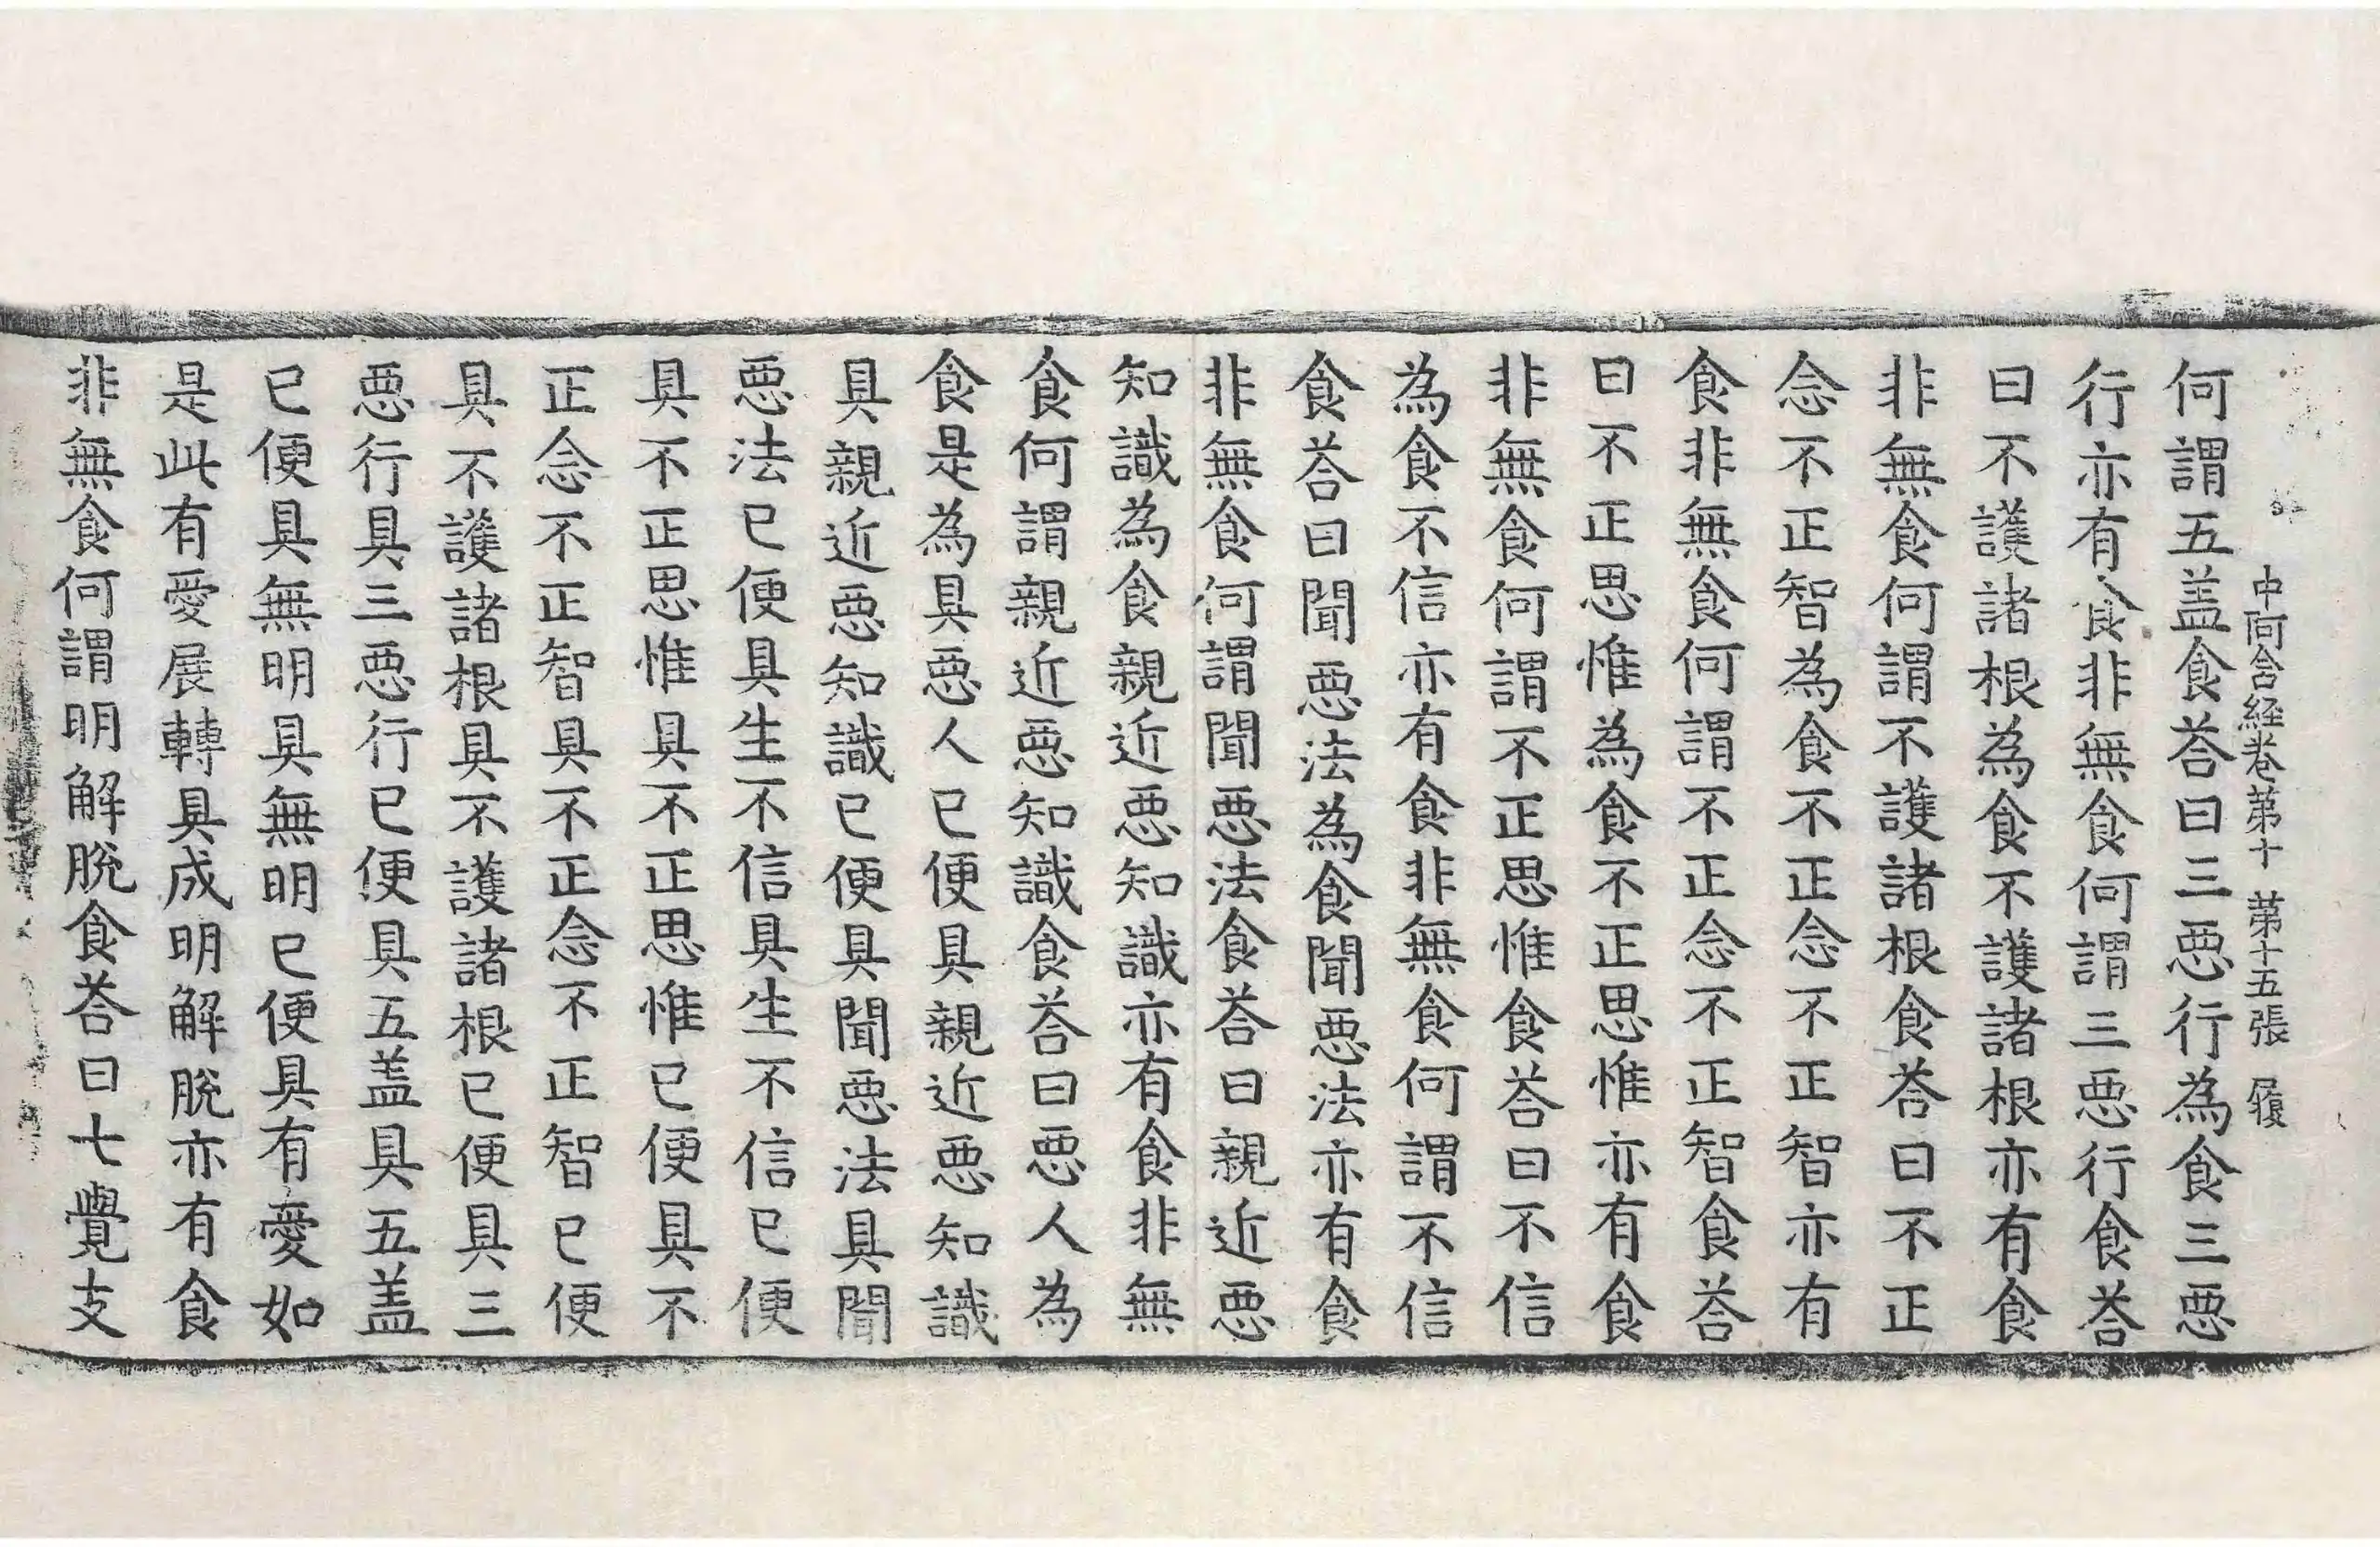 中阿含経巻第十 第十五張 履
何謂五盖食荅曰三惡行為食三惡
行亦有食非無食何謂三惡行食荅
曰不護諸根為食不護諸根亦有食
非無食何謂不護諸根食荅曰不正
念不正智為食不正念不正智亦有
食非無食何謂不正念不正智食荅
曰不正思惟為食不正思惟亦有食
非無食何謂不正思惟食荅曰不信
為食不信亦有食非無食何謂不信
食荅曰聞惡法為食聞惡法亦有食
非無食何謂聞惡法食荅曰親近惡
知識為食親近惡知識亦有食非無
食何謂親近惡知識食荅曰惡人為
食是為具惡人已便具親近惡知識
具親近惡知識已便具聞惡法具聞
惡法已便具生不信具生不信已便
具不正思惟具不正思惟已便具不
正念不正智具不正念不正智已便
具不護諸根具不護諸根已便具三
惡行具三惡行已便具五盖具五盖
已便具無明具無明已便具有愛如
是此有愛展轉具成明解脫亦有食
非無食何謂明解脫食荅曰七覺支